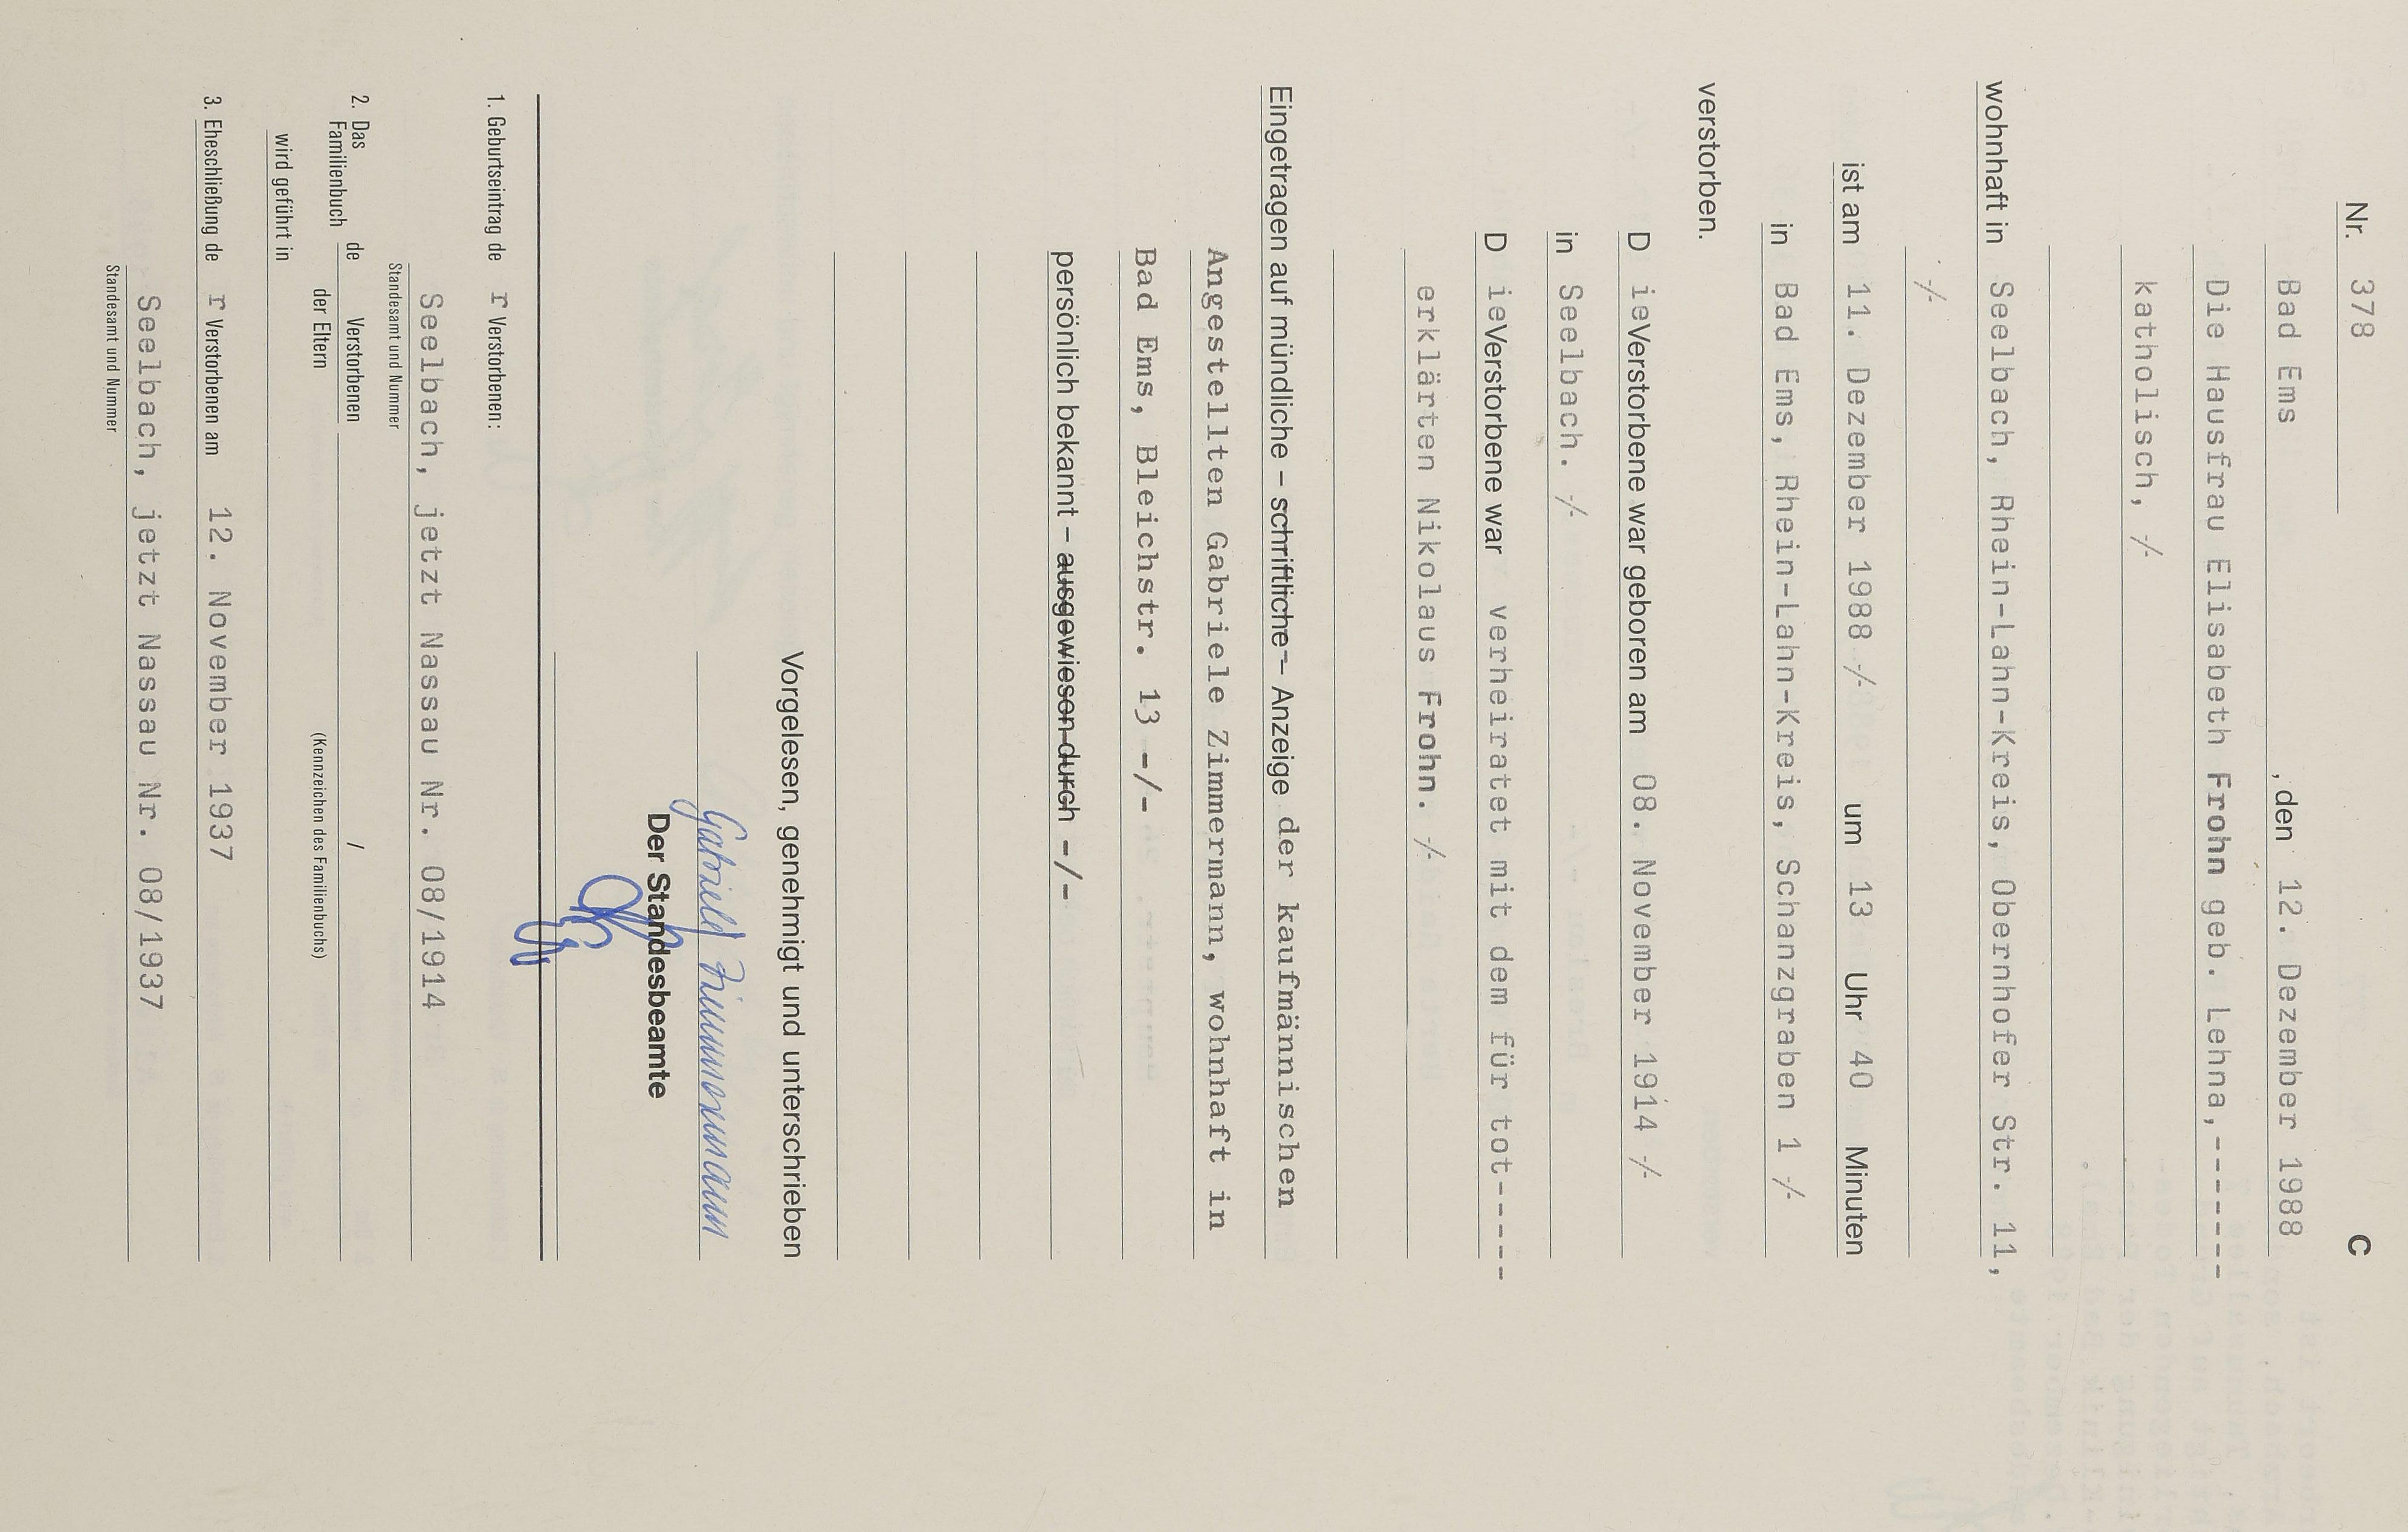 Nr. 378 C
Bad Ems , den 12. Dezember 1988
Die Hausfrau Elisabeth Frohn geb. Lehna,------
katholisch, -/-
wohnhaft in Seelbach, Rhein-Lahn-Kreis, Obernhofer Str. 11,
-/-
ist am 11. Dezember 1988 -/- um 13 Uhr 40 Minuten
in Bad Ems, Rhein-Lahn-Kreis, Schanzgraben 1 -/-
verstorben.
D ieVerstorbene war geboren am 08. November 1914 -/-
in Seelbach. -/-
D ieVerstorbene war verheiratet mit dem für tot-----
erklärten Nikolaus Frohn. -/-
Eingetragen auf mündliche – schriftliche – Anzeige der kaufmännischen
Angestellten Gabriele Zimmermann, wohnhaft in
Bad Ems, Bleichstr. 13 -/-
persönlich bekannt – ausgewiesen durch -/-
Vorgelesen, genehmigt und unterschrieben
Gabriele Zimmermann
Der Standesbeamte
1. Geburtseintrag de r Verstorbenen:
Seelbach, jetzt Nassau Nr. 08/1914
Standesamt und Nummer
2. Das Familienbuch de Verstorbenen /
der Eltern
(Kennzeichen des Familienbuchs)
wird geführt in
3. Eheschließung de r Verstorbenen am 12. November 1937
Seelbach, jetzt Nassau Nr. 08/1937
Standesamt und Nummer